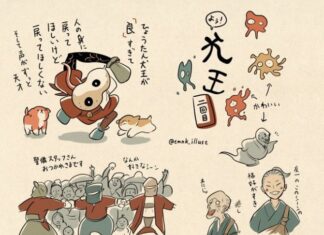 ひょうたん犬王が
「良」すぎて
人の身に
戻って
ほしいけど
戻ってほしくない
そして声がずっと
天才
よう!
犬王
二回目
かわいい
@emnk_illust
警備スタッフさん
おつかれさまです
なんか
すきなシーン